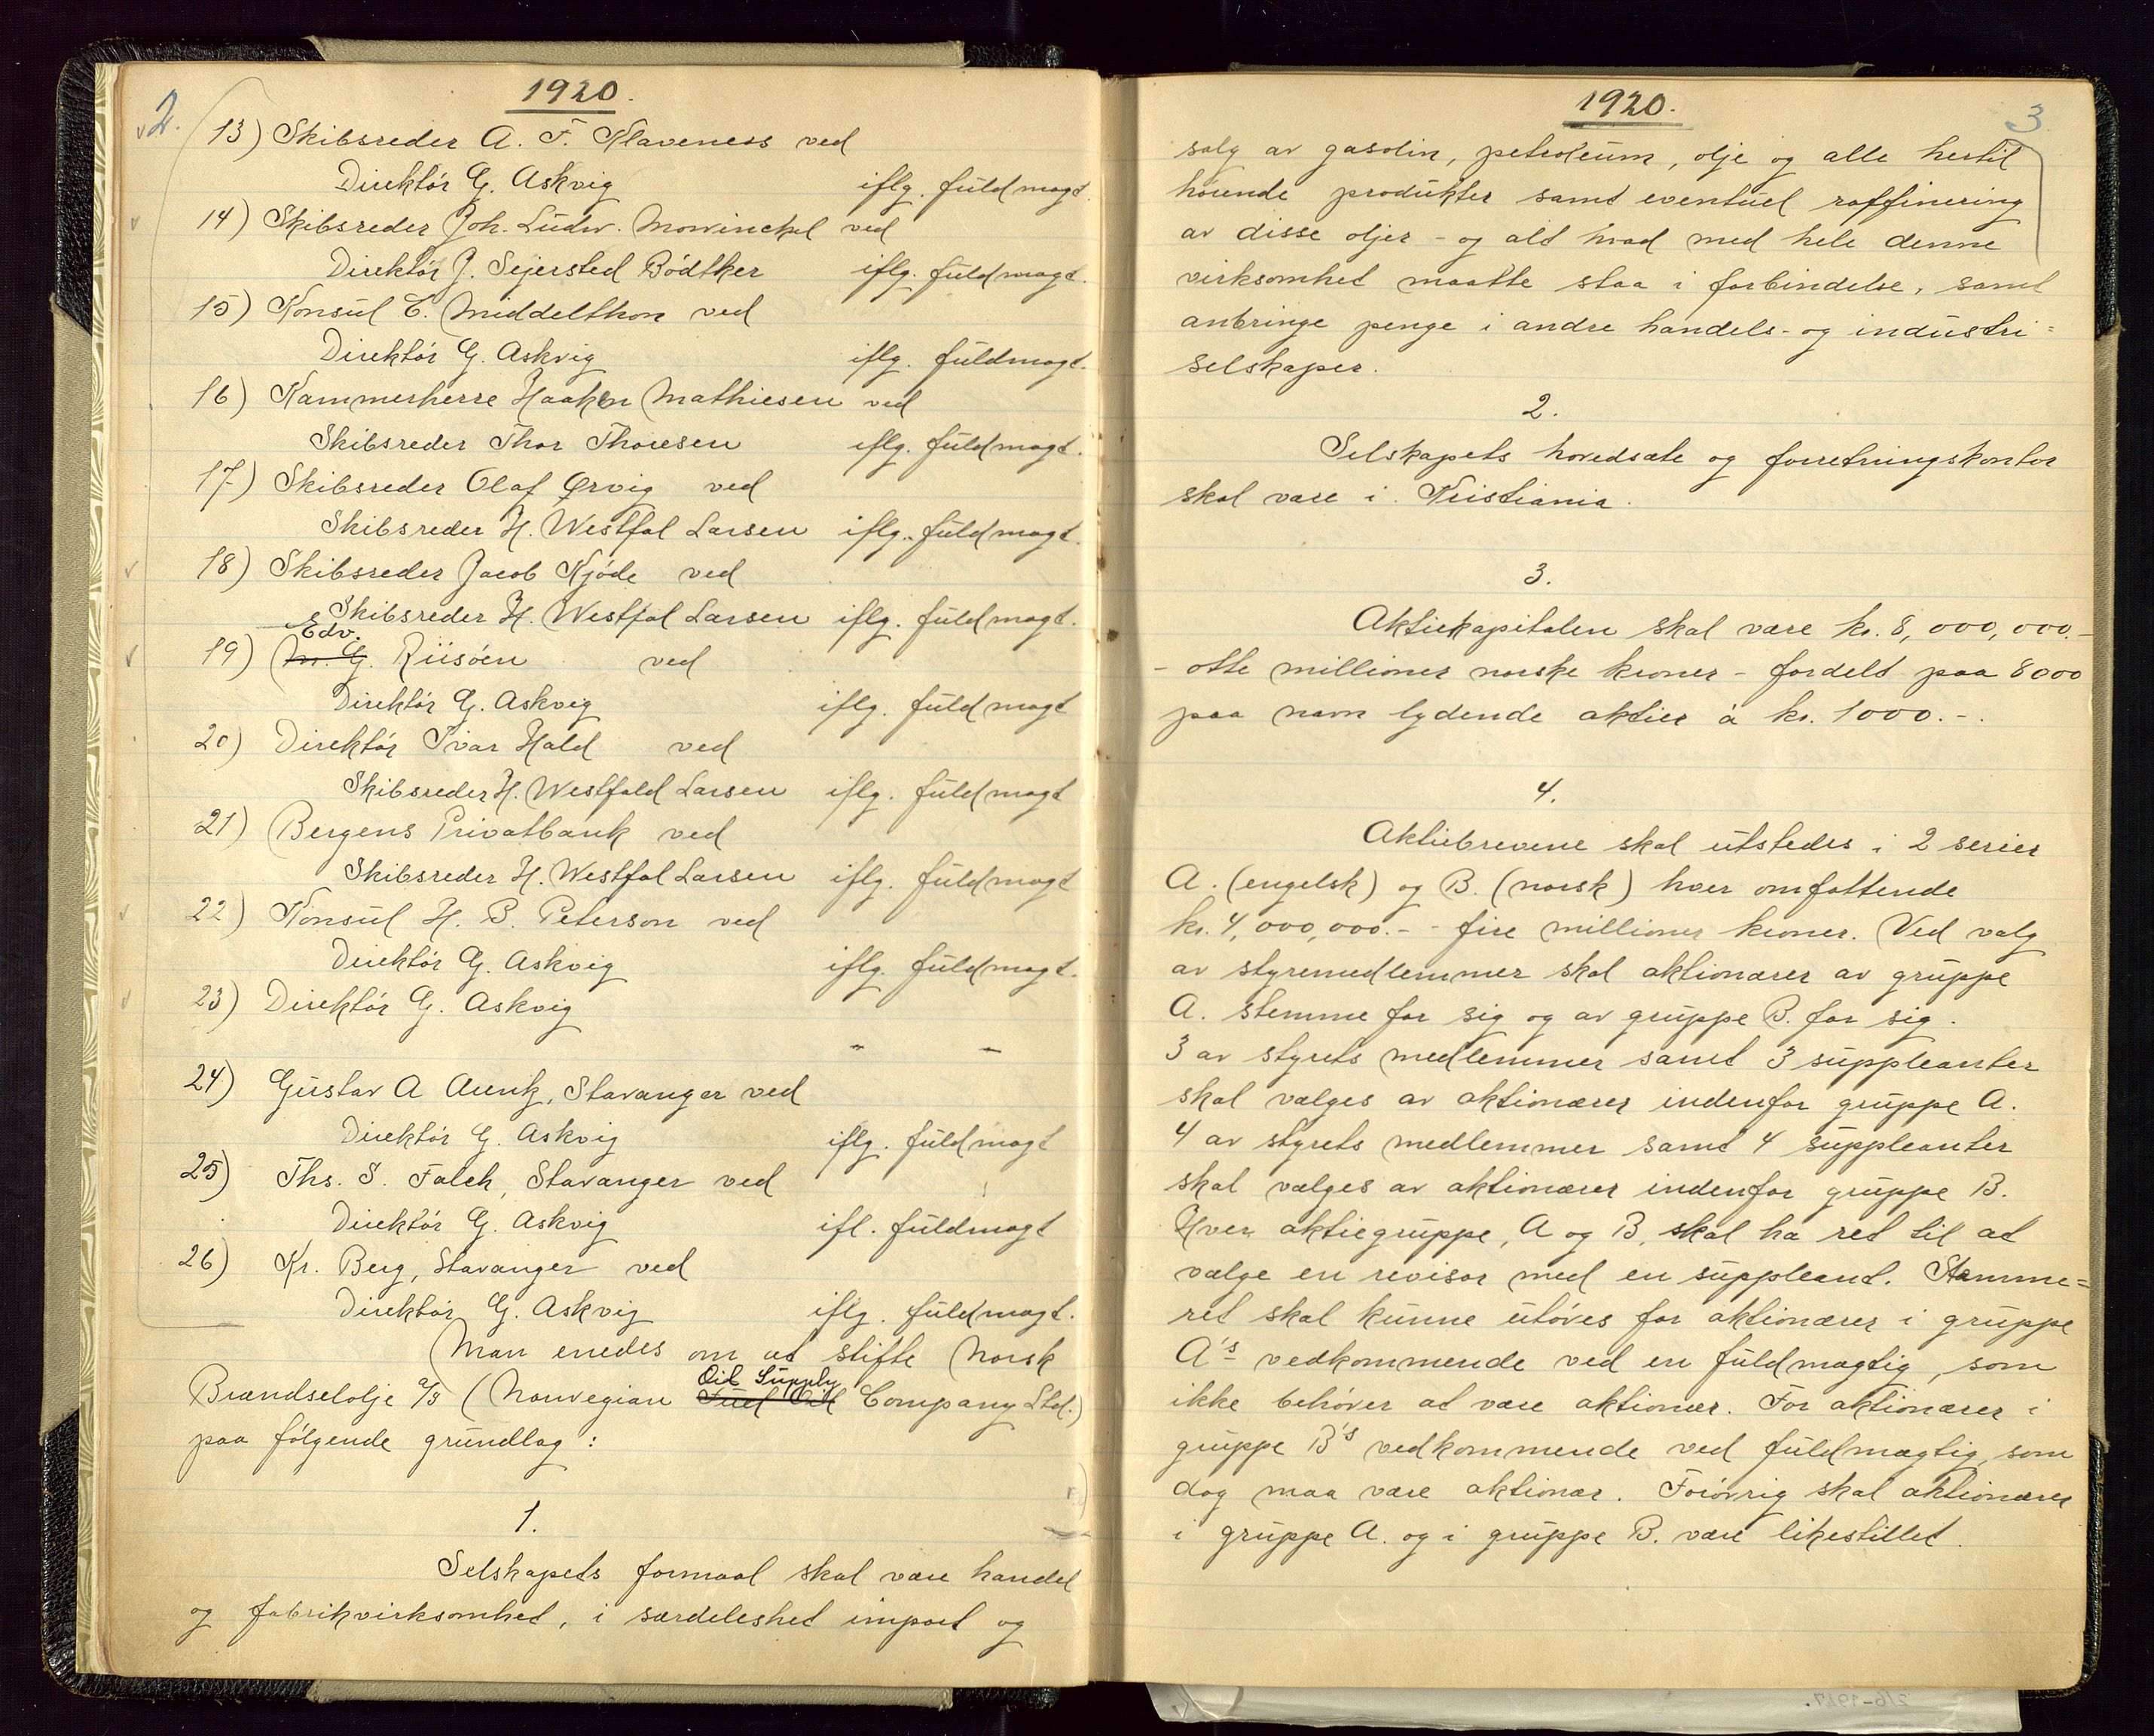 2.
1920.
13) Skibsreder A. F. Klaveness ved
Direktör G. Askvig iflg. fuldmagt.
14) Skibsreder Joh. Ludw. Mowinckel ved
Direktör J. Sejersted Bödtker iflg. fuldmagt.
15) Konsul C. Middelthon ved
Direktör G. Askvig iflg. fuldmagt.
16) Kammerherre Haaken Mathiesen ved
Skibsreder Thor Thoresen iflg. fuldmagt.
17) Skibsreder Olaf Ørvig ved
Skibsreder H. Westfal Larsen iflg. fuldmagt.
18) Skibsreder Jacob Kjöde ved
Skibsreder H. Westfal Larsen iflg. fuldmagt.
Edv.
19) M. G. Riisöen ved
Direktör G. Askvig iflg. fuldmagt
20) Direktör Ivar Hald ved
Skibsreder H. Westfald Larsen iflg. fuldmagt
21) Bergens Privatbank ved
Skibsreder H. Westfal Larsen iflg. fuldmagt
22) Konsul H. B. Peterson ved
Direktör G. Askvig iflg. fuldmagt.
23) Direktör G. Askvig
" "
24) Gustav A Aunk, Stavanger ved
Direktör G. Askvig iflg. fuldmagt
25) Ths. S. Falck, Stavanger ved
Direktör G. Askvig ifl. fuldmagt
26) Kr. Berg, Stavanger ved
Direktör G. Askvig iflg. fuldmagt.
Man enedes om at stifte Norsk
Oil Supply
Brændselolje A/S (Norwegian Fuel Oil Company Ltd.)
paa fölgende grundlag:
1.
Selskapets formaal skal være handel
og fabrikvirksomhet, i særdeleshet import og
1920.
3
salg av gasolin, petroleum, olje og alle hertil
hörende produkter samt eventuel raffinering
av disse oljer - og alt hvad med hele denne
virksomhet maatte staa i forbindelse, samt
anbringe penge i andre handels- og industri=
selskaper.
2.
Selskapets hovedsæte og forretningskontor
skal være i Kristiania.
3.
Aktiekapitalen skal være kr. 8,000,000.-
- otte millioner norske kroner - fordelt paa 8000
paa navn lydende aktier à kr. 1000.-.
4.
Aktiebrevene skal utstedes i 2 serier
A. (engelsk) og B. (norsk) hver omfattende
kr. 4,000,000.- - fire millioner kroner. Ved valg
av styremedlemmer skal aktionærer av gruppe
A. stemme for sig og av gruppe B. for sig.
3 av styrets medlemmer samt 3 suppleanter
skal vælges av aktionærer indenfor gruppe A.
4 av styrets medlemmer samt 4 suppleanter
skal vælges av aktionærer indenfor gruppe B.
Hver aktiegruppe, A og B, skal ha ret til at
vælge en revisor med en suppleant. Stemme=
ret skal kunne utöves for aktionærer i gruppe
A's vedkommende ved en fuldmægtig, som
ikke behöver at være aktionær. For aktionærer i
gruppe B's vedkommende ved fuldmægtig, som
dog maa være aktionær. Forövrig skal aktionærer
i gruppe A. og i gruppe B. være likestillet.
2/6-1927.